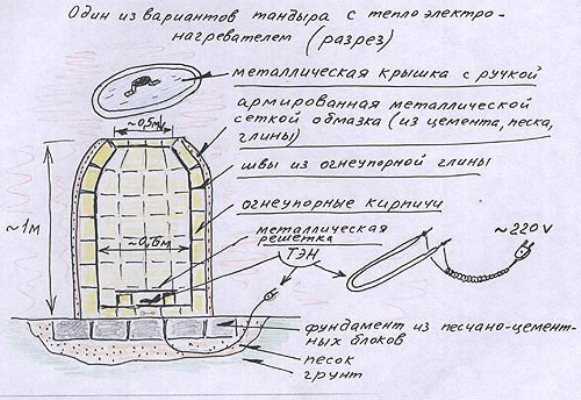 Один из вариантов тандыра с тепло электро-
нагревателем (разрез)
металлическая крышка с ручкой
армированная металлической
сеткой обмазка (из цемента, песка,
глины)
~0,5м
швы из огнеупорной глины
огнеупорные кирпичи
~1м
~0,6м
металлическая
решетка
ТЭН
~220V
фундамент из песчано-цемент-
ных блоков
песок
грунт